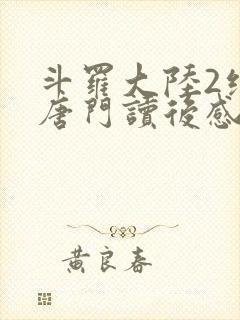 斗羅大陸2
唐門讀後感
黃良春